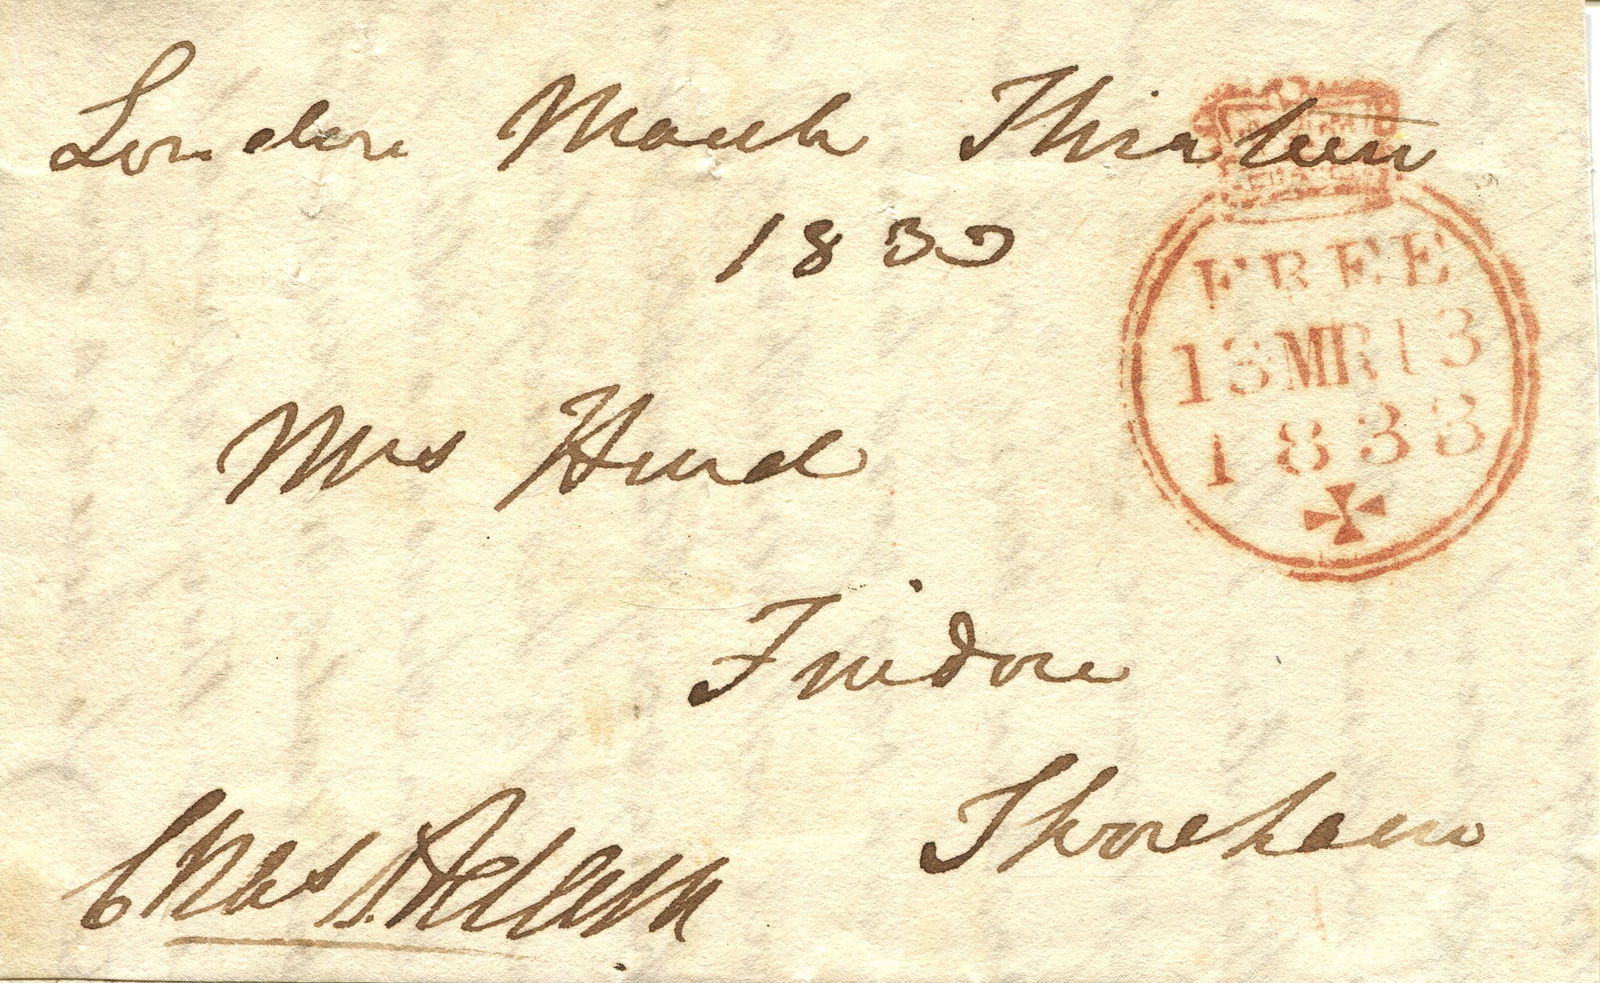 London March Thirteen
1833
FREE
13 MR 13
1833
Mrs Hurd
Findon
Shoreham